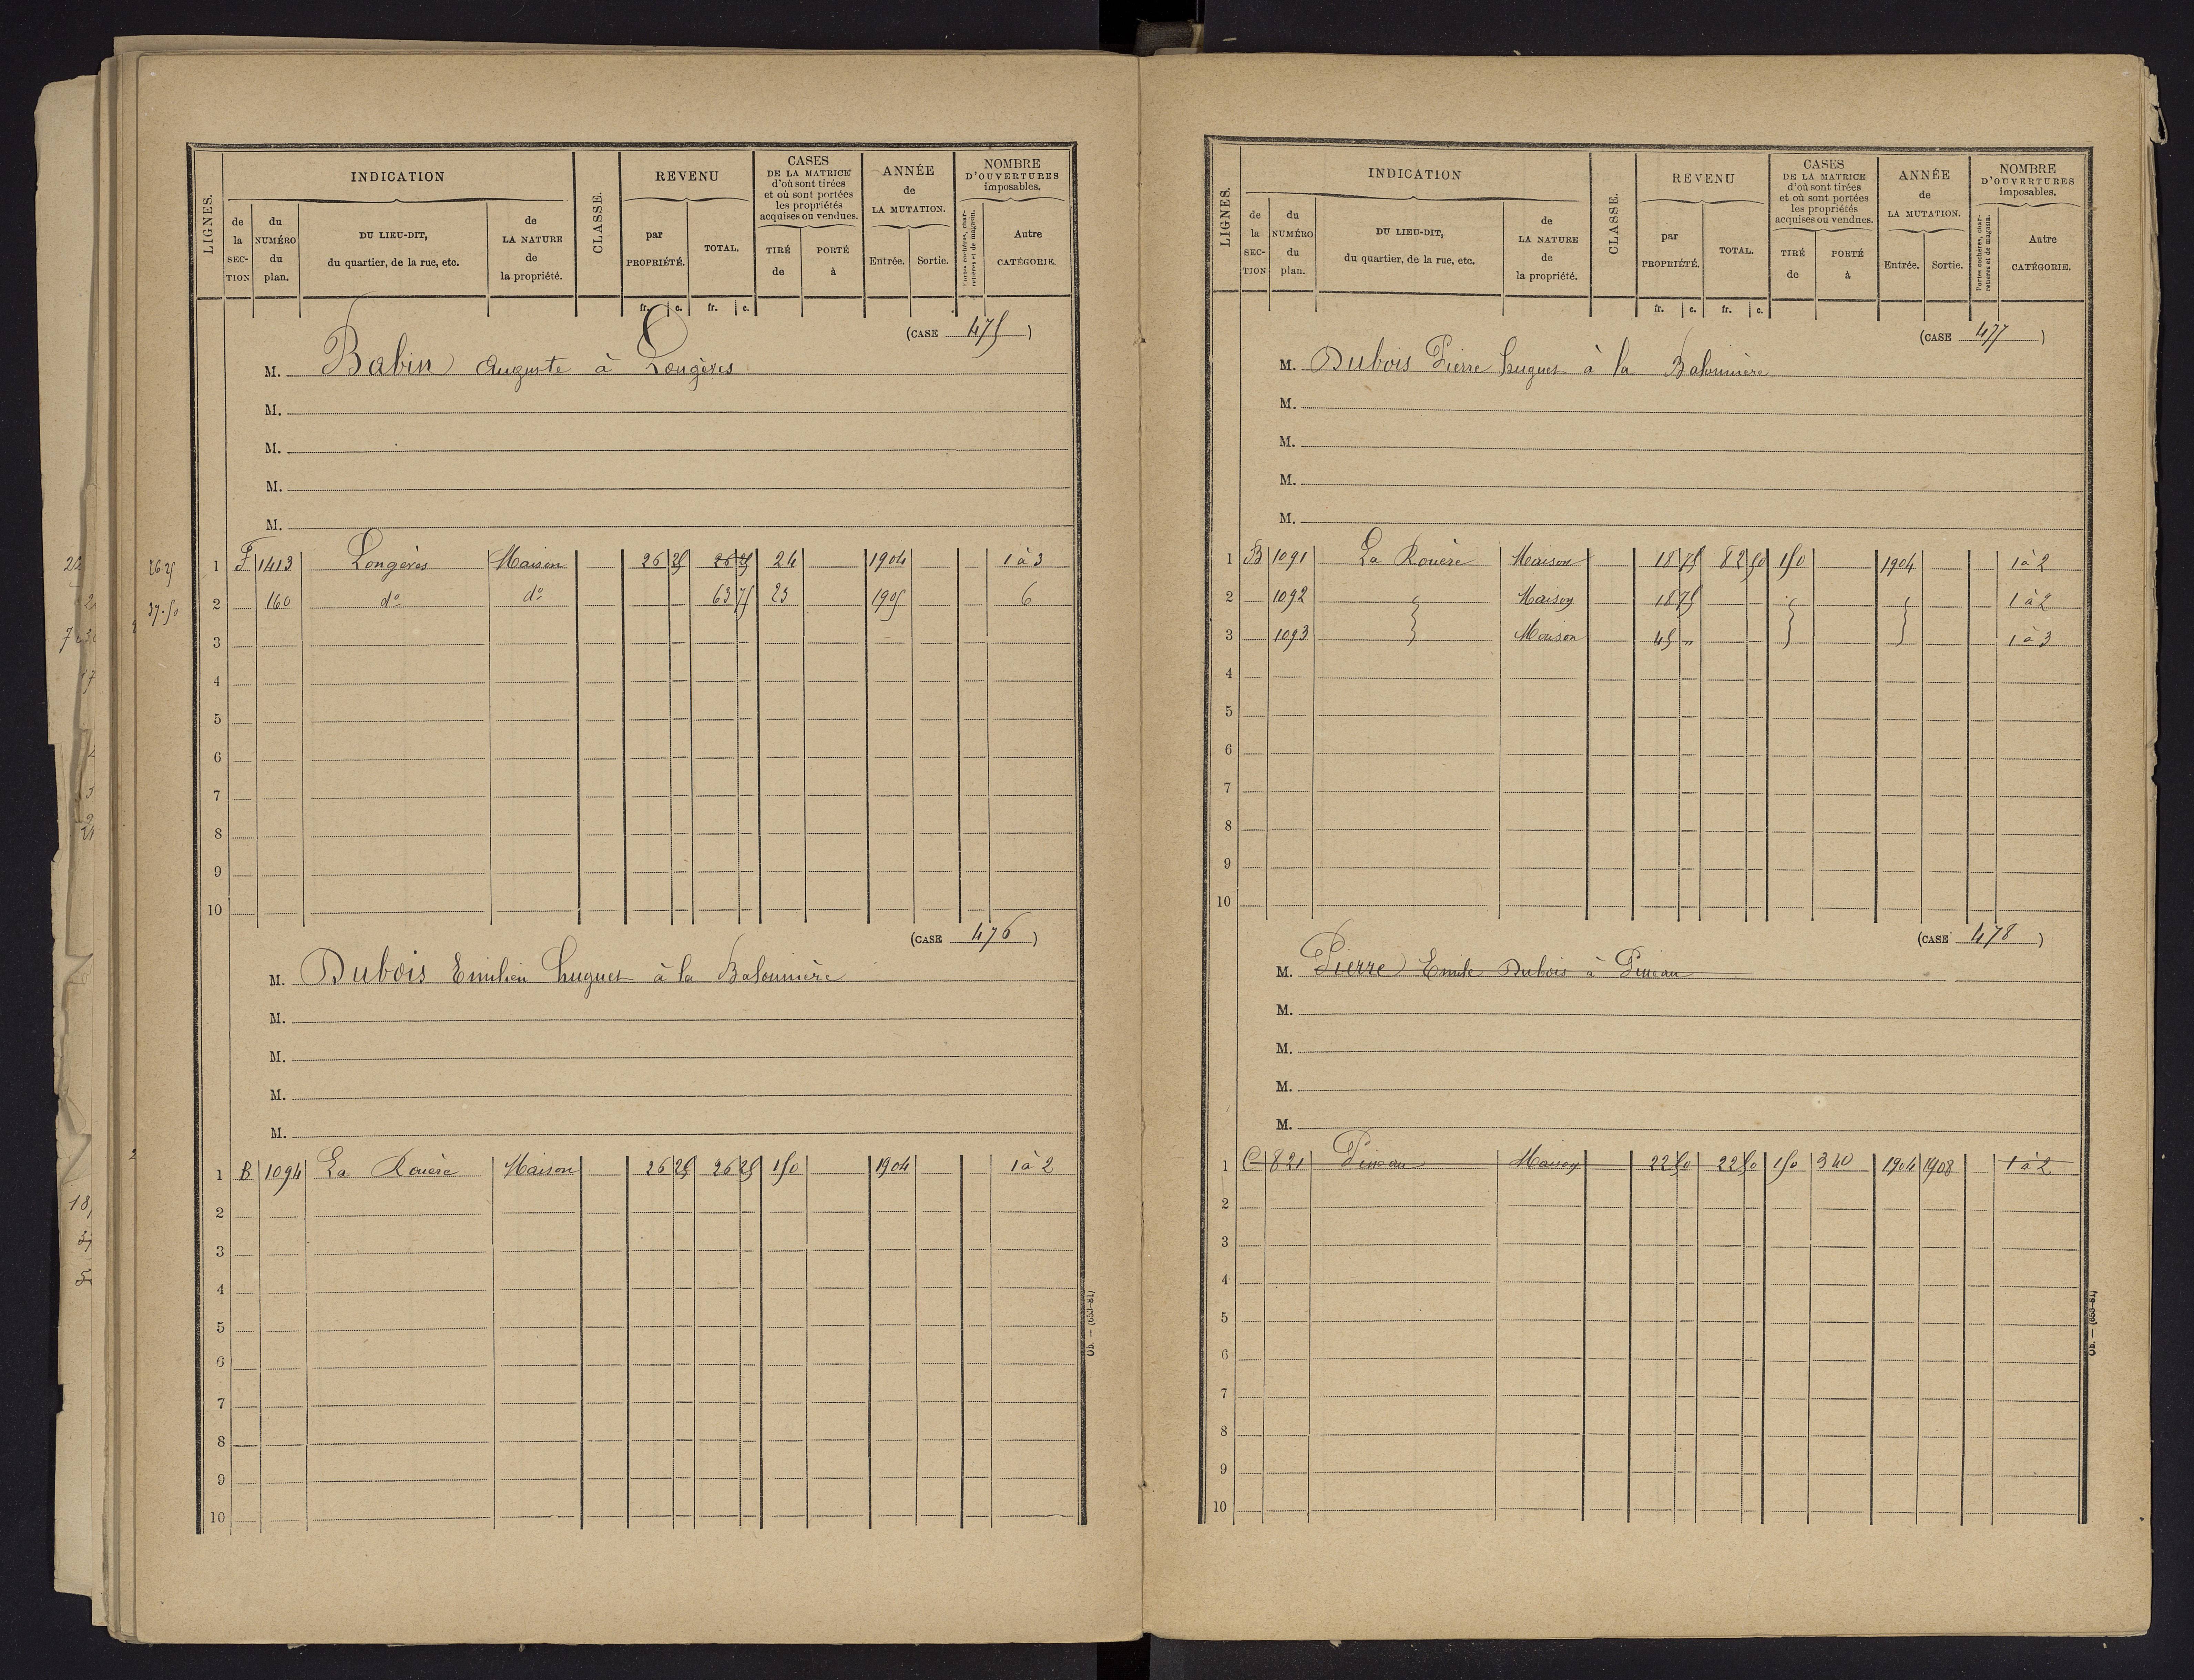 LIGNES.
INDICATION
de la SECTION
du NUMÉRO du plan.
DU LIEU-DIT, du quartier, de la rue, etc.
de LA NATURE de la propriété.
CLASSE.
REVENU
par PROPRIÉTÉ.
TOTAL.
CASES DE LA MATRICE d'où sont tirées et où sont portées les propriétés acquises ou vendues.
TIRÉ de
PORTÉ à
ANNÉE de LA MUTATION.
Entrée.
Sortie.
NOMBRE D'OUVERTURES imposables.
Portes cochères, charretières et de magasin.
Autre CATÉGORIE.
fr. c. fr. c.
(CASE 475)
M. Babin Auguste à Longères
M.
M.
M.
M.
26.25
37.50
1 F 1413 Longères Maison 26 25 26 25 24 1904 1 à 3
2 160 do do 63 75 23 1905 6
3
4
5
6
7
8
9
10
(CASE 476)
M. Dubois Emilien hugues à la Balonnière
M.
M.
M.
M.
1 B 1094 La Rouère Maison 26 25 26 25 150 1904 1 à 2
2
3
4
5
6
7
8
9
10
Ob. — (653-81)
LIGNES.
INDICATION
de la SECTION
du NUMÉRO du plan.
DU LIEU-DIT, du quartier, de la rue, etc.
de LA NATURE de la propriété.
CLASSE.
REVENU
par PROPRIÉTÉ.
TOTAL.
CASES DE LA MATRICE d'où sont tirées et où sont portées les propriétés acquises ou vendues.
TIRÉ de
PORTÉ à
ANNÉE de LA MUTATION.
Entrée.
Sortie.
NOMBRE D'OUVERTURES imposables.
Portes cochères, charretières et de magasin.
Autre CATÉGORIE.
fr. c. fr. c.
(CASE 477)
M. Dubois Pierre hugues à la Balonnière
M.
M.
M.
M.
1 B 1091 La Rouère Maison 18 75 82 50 150 1904 1 à 2
2 1092 Maison 18 75 1 à 2
3 1093 Maison 45 " 1 à 3
4
5
6
7
8
9
10
(CASE 478)
M. Pierre Emile Dubois à Pineau
M.
M.
M.
M.
1 C 821 Pineau Maison 22 50 22 50 150 340 1904 1908 1 à 2
2
3
4
5
6
7
8
9
10
Ob. — (653-81)